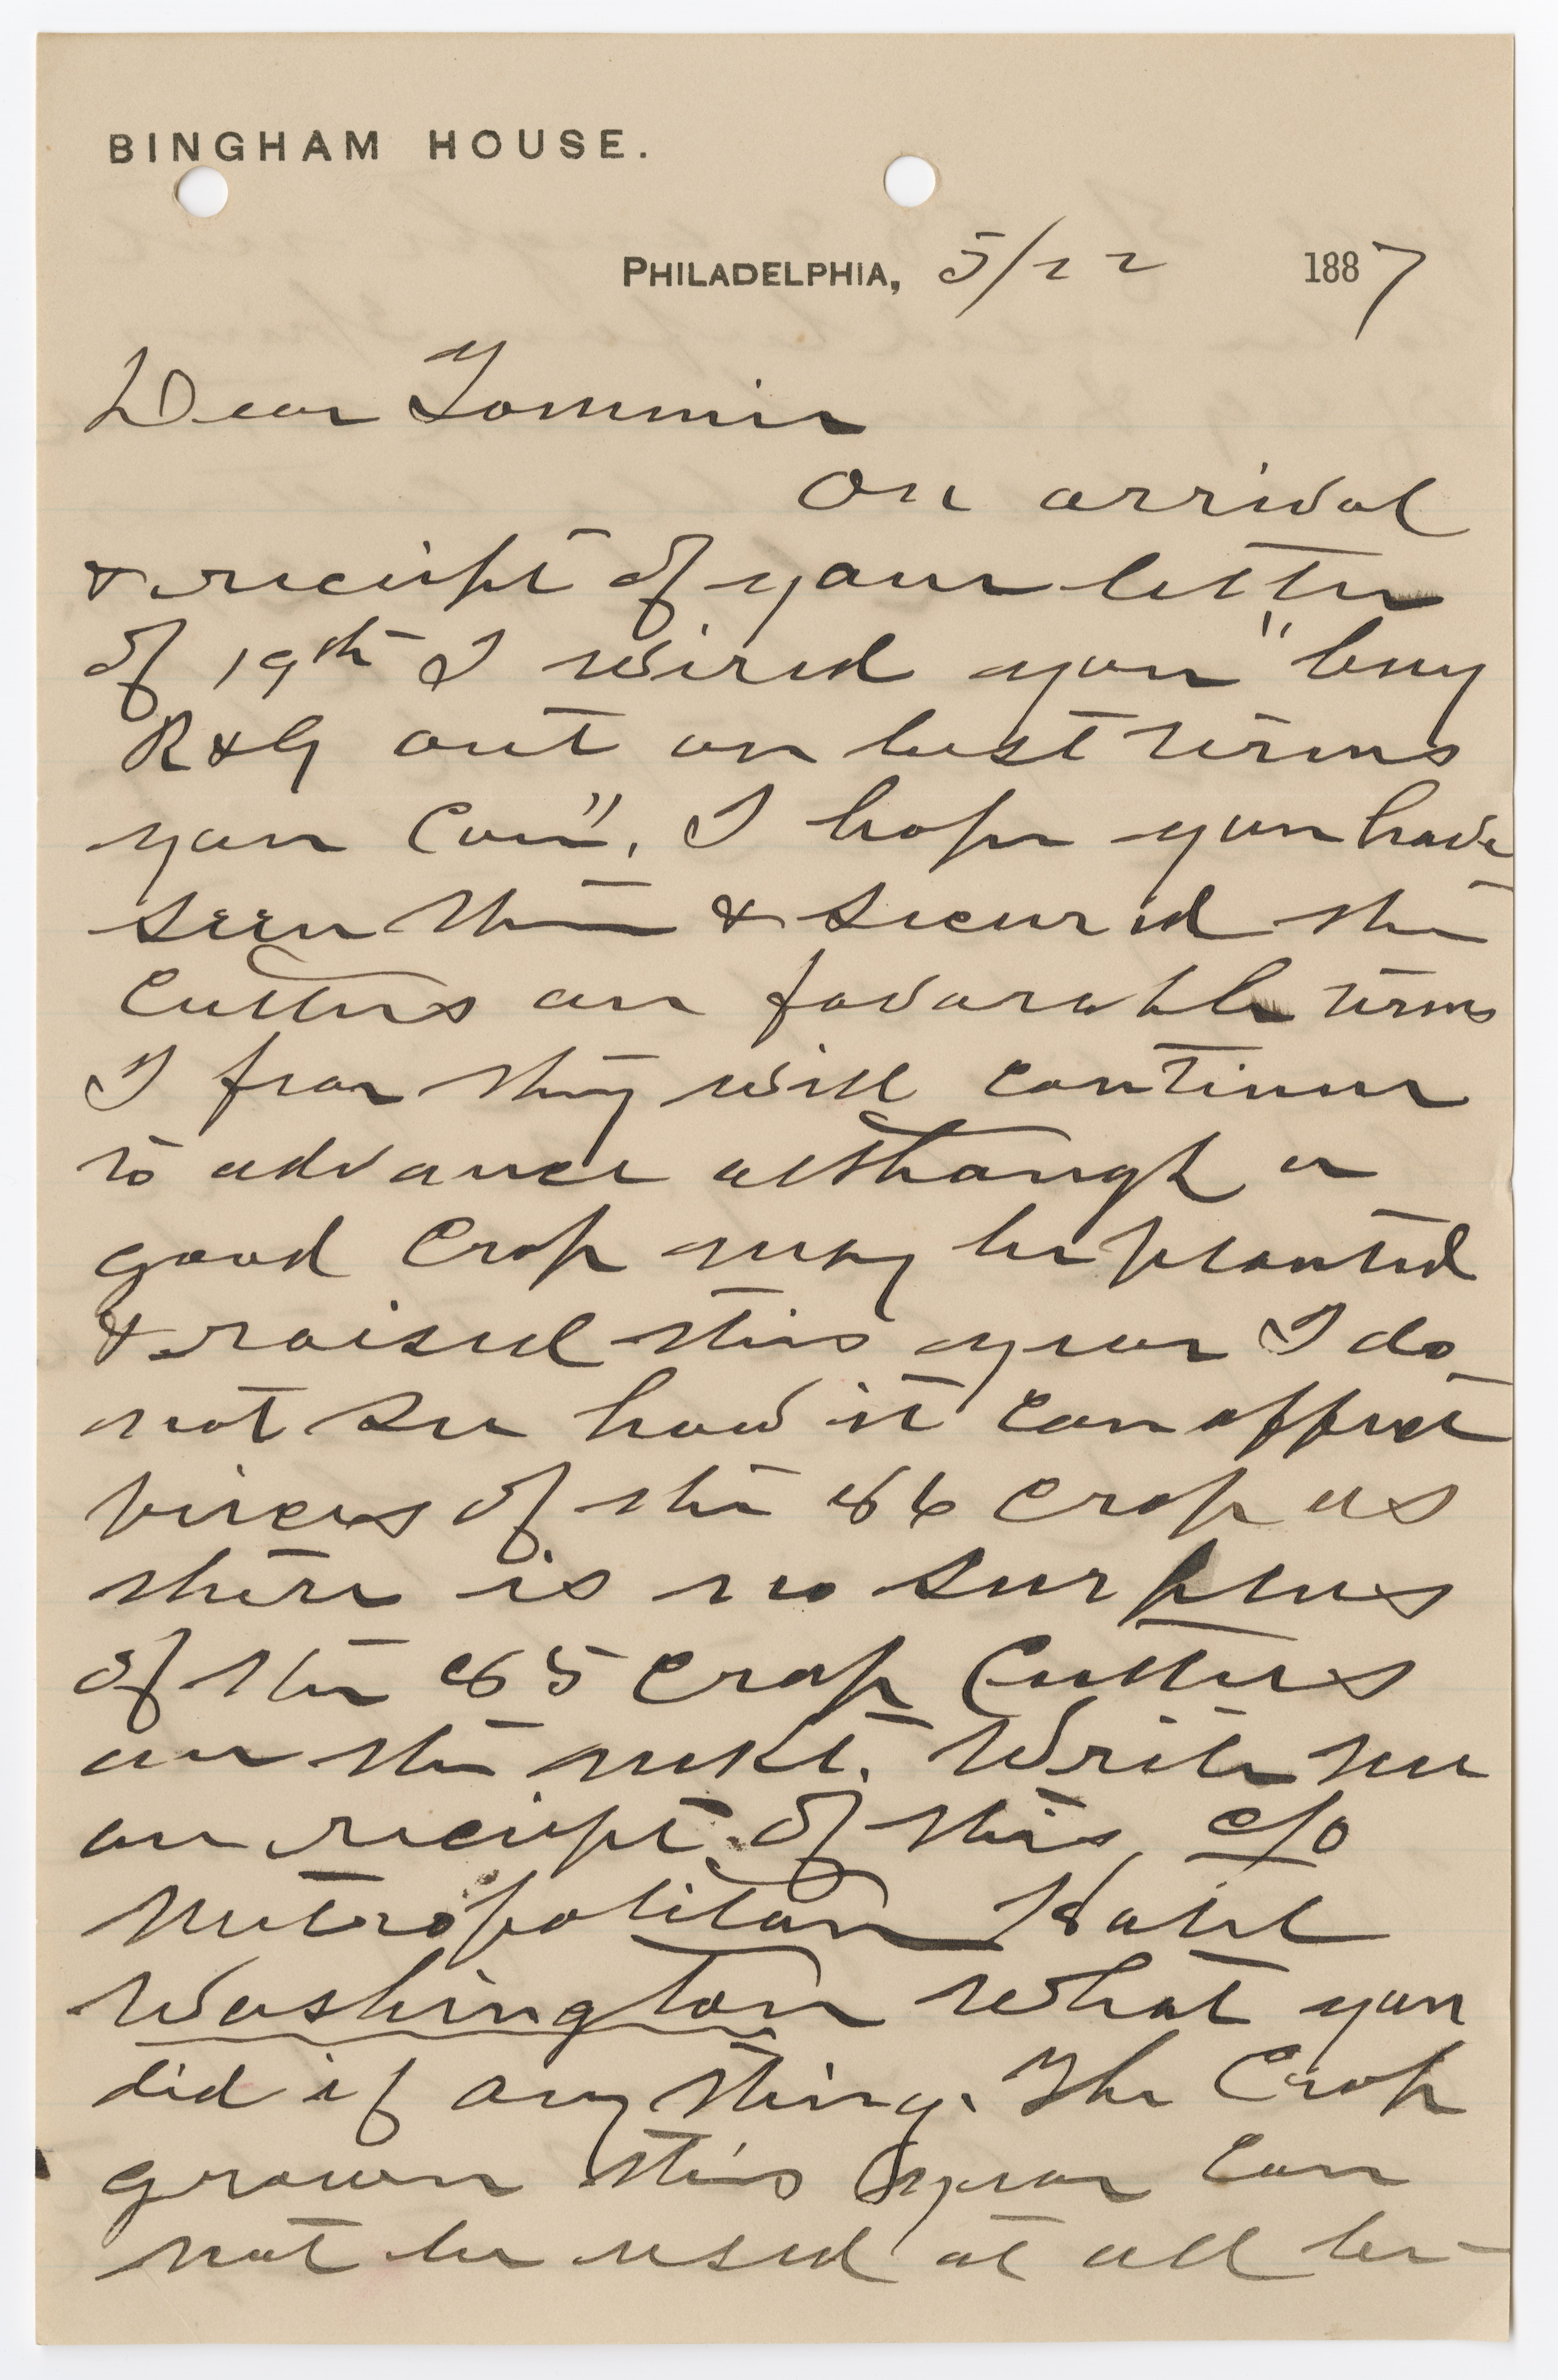 BINGHAM HOUSE.
PHILADELPHIA, 5/22 1887
Dear Tommie
On arrival
& reciept of your letter
of 19th I wired you "buy
R&G out on best terms
you can". I hope you have
seen them & secured the
Cutters on favorable terms
I fear they will continue
to advance although a
good Crop may be planted
& raised this year I do
not see how it can affect
prices of the 86 Crop as
there is no surplus
of the 85 Crop Cutters
on the mkt. Write me
on reciept of this, c/o
Metropolitan Hotel
Washington what you
did if any thing. The Crop
grown this year can
not be used at all be-